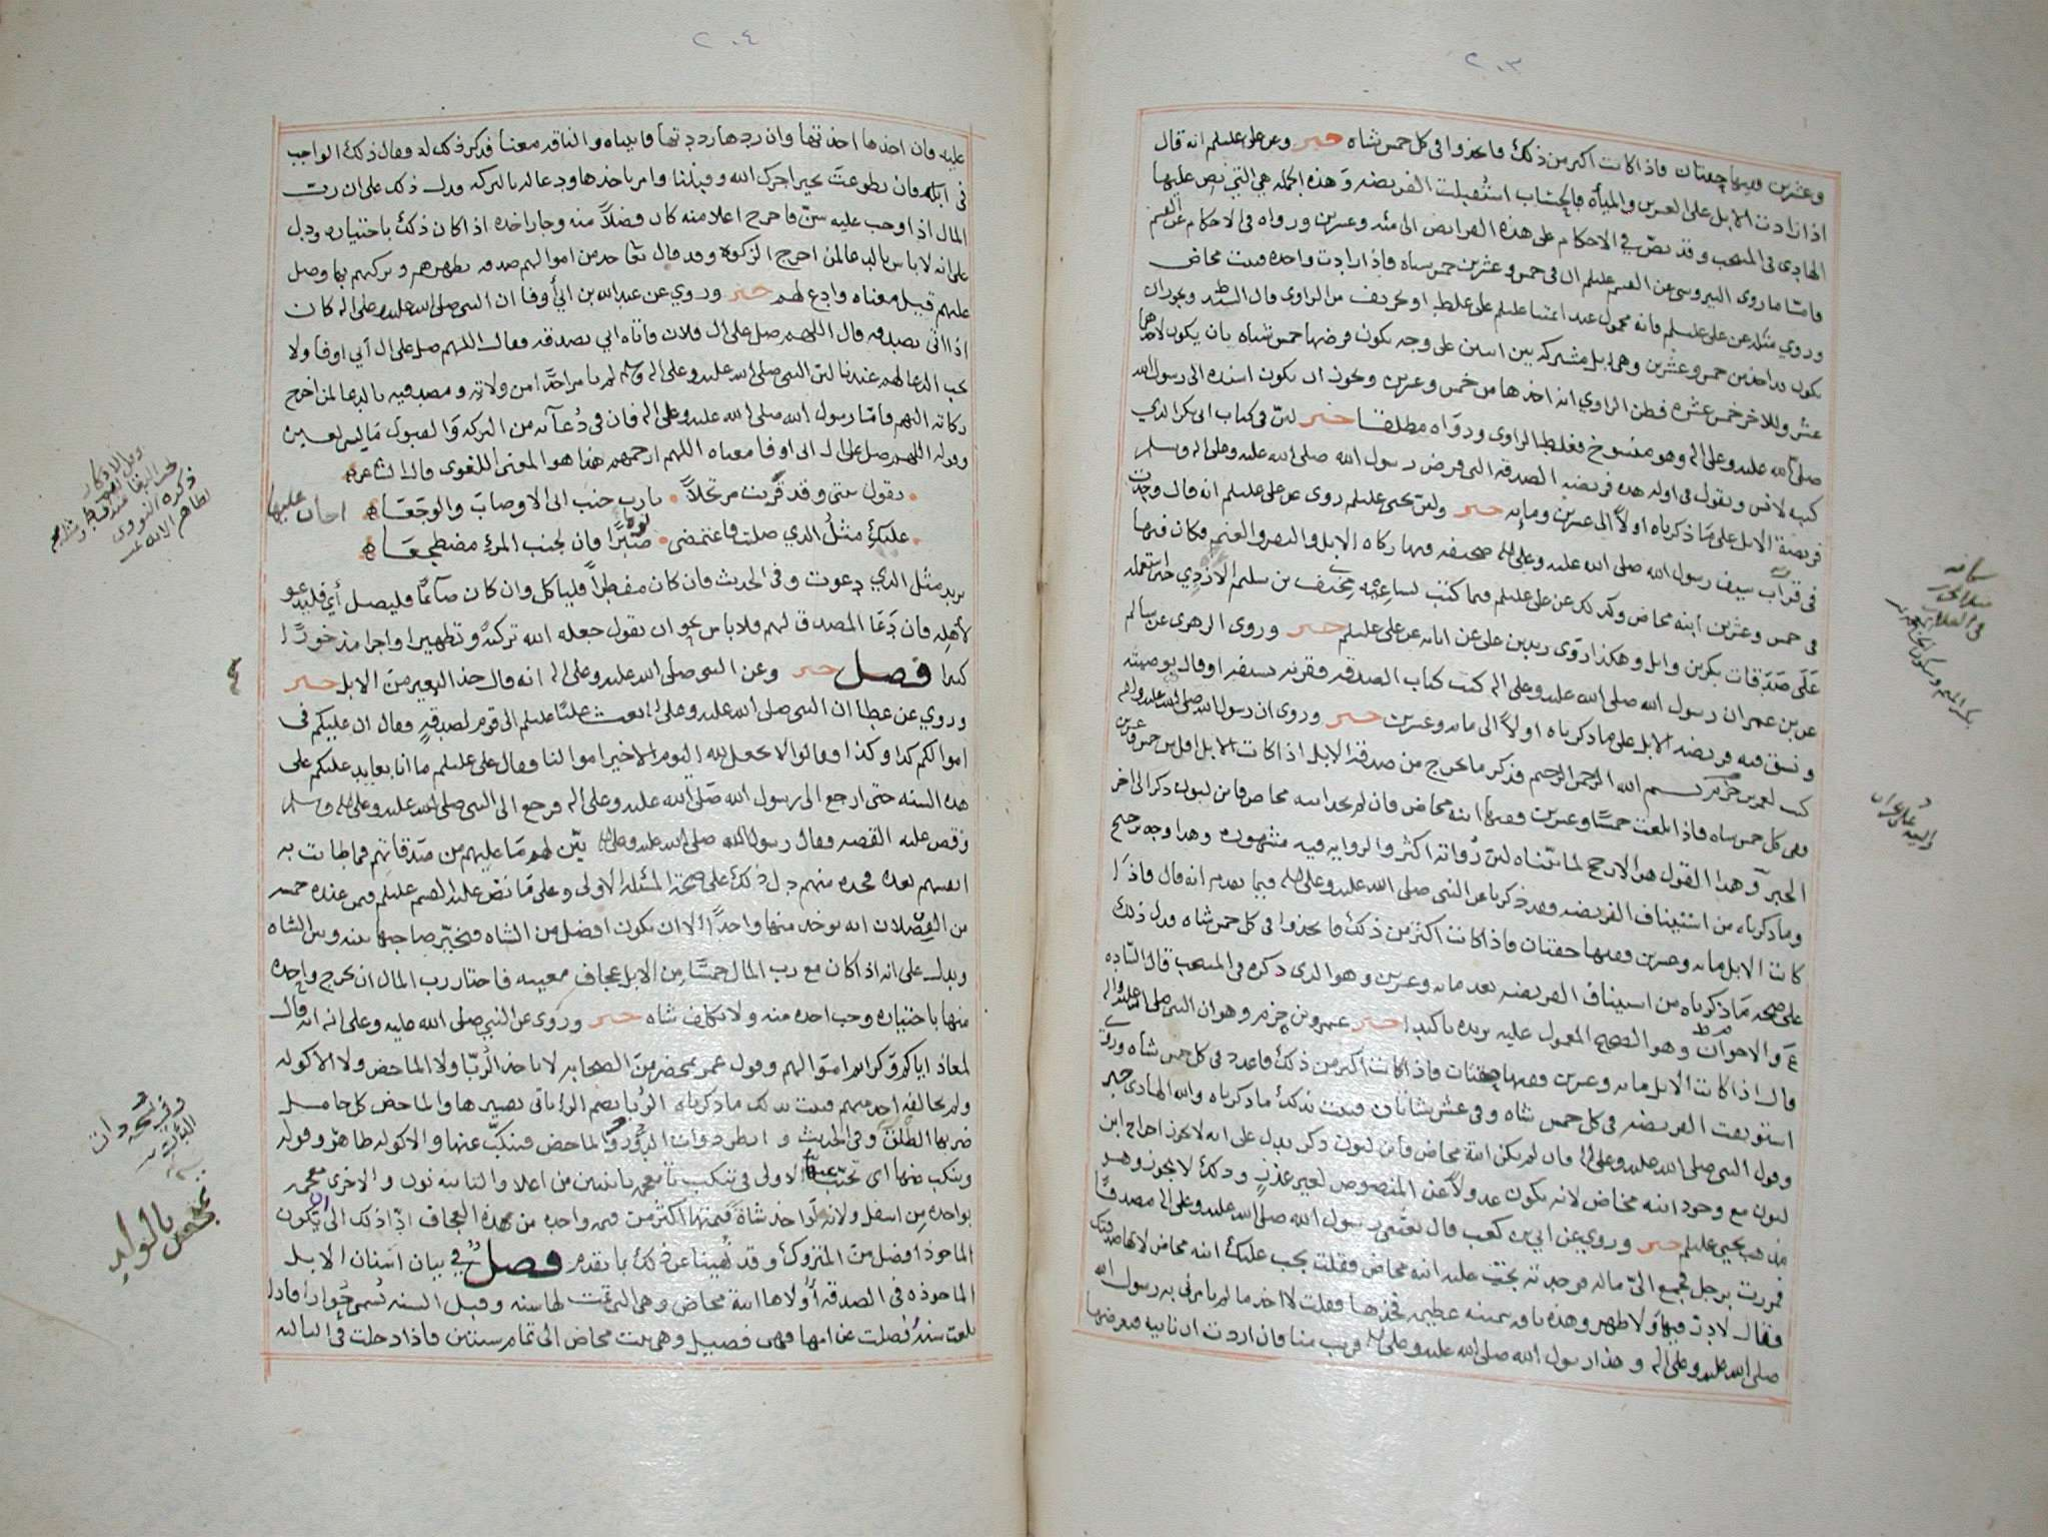 ٢٠٣
وعشرين ففيها حقتان فاذا كانت اكثر من ذلك فاعدوا في كل خمس شاه خبر وعن علي عليلم انه قال
اذا زادت الابل على العشرين والمأة فالحساب استقبلت الفريضه وهذه الجمله هي التي نص عليها
الهادي في المنتخب وقد نص في الاحكام على هذه الفرايض الى مئه وعشرين ورواه في الاحكام عن القسم
فاما ما روى النيروسي عن القسم عليلم ان في خمس وعشرين خمس شياه فاذا زادت واحده فبنت مخاض
وروي مثله عن علي عليلم فانه محمول عند ائمتنا عليلم على غلط او تحريف من الراوي قال السيد ط ويجوز ان
يكون اخذ من خمس وعشرين وهي ابل مشتركه بين اثنين على وجه يكون فرضها خمس شياه بان يكون لاحدهما
عشر وللاخر خمس عشره فظن الراوي انه اخذها من خمس وعشرين ويجوز ان يكون اسنده الى رسول الله
صلى الله عليه وعلى اله وهو منسوخ فغلط الراوي ورواه مطلقا خبر لنس في كتاب ابي بكر الذي
كتبه لانس ويقول في اوله هذه فريضه الصدقه التي فرض رسول الله صلى الله عليه وعلى اله وسلم
فريضة الابل على ما ذكرناه اولاً الى عشرين ومايه خبر وعن يحيى عليلم روى عن علي عليلم انه قال وجدت
في قراب سيف رسول الله صلى الله عليه وعلى اله صحيفه فيها زكاه الابل والبقر والغنم فكان فيها
في خمس وعشرين ابنة مخاض وكذلك عن علي عليلم فيما كتب لساعيه مخنف بن سليم الازدي حين استعمله
على صدقات بكر بن وايل وهكذا روى زيد بن علي عن ابائه عن علي عليلم خبر وروى الزهري عن سالم
عن بن عمر ان رسول الله صلى الله عليه وعلى اله كتب كتاب الصدقه فقرنه بسيفه او قال بوصيته
ونسق فيه فريضه الابل على ما ذكرناه اولاً الى مايه وعشرين خبر وروى ان رسول الله صلى الله عليه واله
كتب لعمرو بن حزم بسم الله الرحمن الرحيم فذكر ما يخرج من صدقة الابل اذا كانت الابل اقل من خمس وعشرين
ففي كل خمس شاه فاذا بلغت خمسًا وعشرين ففيها ابنة مخاض فان لم يجد ابنه مخاض فابن لبون ذكر الى اخر
الخبر وهذا القول هو الارجح لما بيناه لان رواته اكثر والروايه فيه مشهوره وهذا وجه ترجيح
وما ذكرناه من استيناف الفريضه وقد ذكرنا عن النبي صلى الله عليه وعلى اله فيما تقدم انه قال فاذا
كانت الابل مايه وعشرين ففيها حقتان فاذا كانت اكثر من ذلك فاعدوا في كل خمس شاه فدل ذلك
على صحه ما ذكرناه من استيناف الفريضه بعد مايه وعشرين وهو الذي ذكره في المنتخب قال الساده
ع والاخوان وهو الصحيح المعمول عليه يزيده تاكيدا خبر عمرو بن حزم وهو ان النبي صلى الله عليه واله
قال اذا كانت الابل مايه وعشرين ففيها حقتان فاذا كانت اكثر من ذلك فاعدد في كل خمس شاه وروي
استونفت الفريضه في كل خمس شاه وفي عشر شاتان فثبت بذلك ما ذكرناه والله الهادي خبر
وقول النبي صلى الله عليه وعلى اله فان لم يكن ابنة مخاض فابن لبون ذكر يدل على انه لا يجوز اخراج ابن
لبون مع وجود ابنه مخاض لانه يكون عدولاً عن المنصوص لغير عذرٍ وذلك لا يجوز وهو
مذهب يحيى عليلم خبر وروي عن ابي بن كعب قال بعثني رسول الله صلى الله عليه وعلى اله مصدقًا
فمررت برجل فجمع اليّ ماله فوجدته يجب عليه ابنه مخاض فقلت يجب عليك ابنه مخاض لانها صدقتك
فقال لا در فيها ولا ظهر وهذه ناقه سمينه عظيمه فخذها فقلت لا اخذ ما لم يامرني به رسول الله
صلى الله عليه وعلى اله وهذا رسول الله صلى الله عليه وعلى اله قريب منا فان اردت ان تاتيه فتعرضها
٢٠٤
عليه فان اخذها اخذتها وان ردها رددتها فاتيناه والناقه معنا فذكر ذلك له فقال ذلك الواجب
في ابلك فان تطوعت بخير اجرك الله وقبلنا وامر باخذها ودعا له بالبركه فدل ذلك على ان رب
المال اذا وجب عليه سنّ فاخرج اعلا منه كان فضلاً منه وجاز اخذه اذا كان ذلك باختياره ودل
على انه لا باس بالدعا لمن اخرج الزكوة وقد قال تعا خذ من اموالهم صدقه تطهرهم وتزكيهم بها وصل
عليهم قيل معناه وادع لهم خبر وروي عن عبدالله بن ابي أوفا ان النبي صلى الله عليه وعلى اله كان
اذا اتى بصدقه قال اللهم صل على ال فلان فاتاه ابي بصدقه فقال اللهم صل على ال أبي اوفا ولا
يجب الدعا لهم عندنا لان النبي صلى الله عليه وعلى اله وسلم لم يامر احدًا من ولاته ومصدقيه بالدعا لمن اخرج
زكاته اليهم فاما رسول الله صلى الله عليه وعلى اله فان في دُعآئه من البركه والقبول ما ليس لغيره
وقوله اللهم صل على ال ابي اوفا معناه اللهم ارحمهم هذا هو المعنى اللغوي قال الشاعر
تقول بنتي وقد قربت مرتحلاً يا رب جنب ابي الاوصاب والوجعا
عليك مثلُ الذي صليت فاغتمضي نومًا فان لجنب المرء مضطجعا
يريد مثل الذي دعوت وفي الحديث فان كان مفطراً فلياكل وان كان صآئمًا فليصل أي فليدعو
لأهله فان دَعَا المصدق لهم فلا باس نحو ان يقول جعله الله تزكيةً وتطهيرا واجرا مذخورًا
كثيرا فصل خبر وعن النبي صلى الله عليه وعلى اله انه قال خذ البعير من الابل خبر
وروي عن عطا ان النبي صلى الله عليه وعلى اله بعث عليًا عليلم الى قوم لصدقةٍ فقال ان عليكم في
اموالكم كذا وكذا فقالوا لا نجعل لله اليوم الا خير اموالنا فقال علي عليلم ما انا بعايد عليكم على
هذه السنه حتى ارجع الى رسول الله صلى الله عليه وعلى اله فرجع الى النبي صلى الله عليه وعلى اله وسلم
وقص عليه القصه فقال رسول الله صلى الله عليه وعلى اله بيّن لهم ما عليهم من صدقاتهم فما طابت به
انفسهم بعده فخذه منهم دل ذلك على صحة المسئله الاولى وعلى ما نص عليه القسم عليلم فيمن عنده خمس
من الفصلان انه يوخذ منها واحدًا الا ان يكون افضل من الشاه فيخيّر صاحبها بينه وبين الشاه
ويدل على انه اذا كان مع رب المال خمسًا من الابل عجاف معيبه فاختار رب المال ان يخرج واحده
منها باختياره وجب اخذه منه ولا يكلف شاه خبر وروى عن النبي صلى الله عليه وعلى اله انه قال
لمعاذ اياكم وكرايم اموالهم وقول عمر بمحضر من الصحابه لا تاخذ الرُبّا ولا الماخض ولا الاكوله
ولم يخالفه احد منهم فثبت بذلك ما ذكرناه الرُبا بضم الراء التي تصير ها والماخض كل حامل
ضربها الطلق وفي الحديث
وتنكب عنها اي تجنب عنها الاولى في تنكب تا معجمه باثنتين من اعلا والثانيه نون والاخرى معجمه
بواحده من اسفل ولانه لو اخذ شاة قيمتها اكثر من قيمه واحده من هذه العجاف ادّا ذلك الى ان يكون
الماخوذ افضل من المتروك وقد نُهينا عن ذلك بما تقدم فصل في بيان اسنان الابل
الماخوذه في الصدقه أولاها ابنة مخاض وهي التي تمت لها سنه وقبل السنه تُسمى حُوارا فاذا
بلغت سنةً فصلت عن امها فهي فصيل وهي بنت مخاض الى تمام سنتين فاذا دخلت في الثالثه